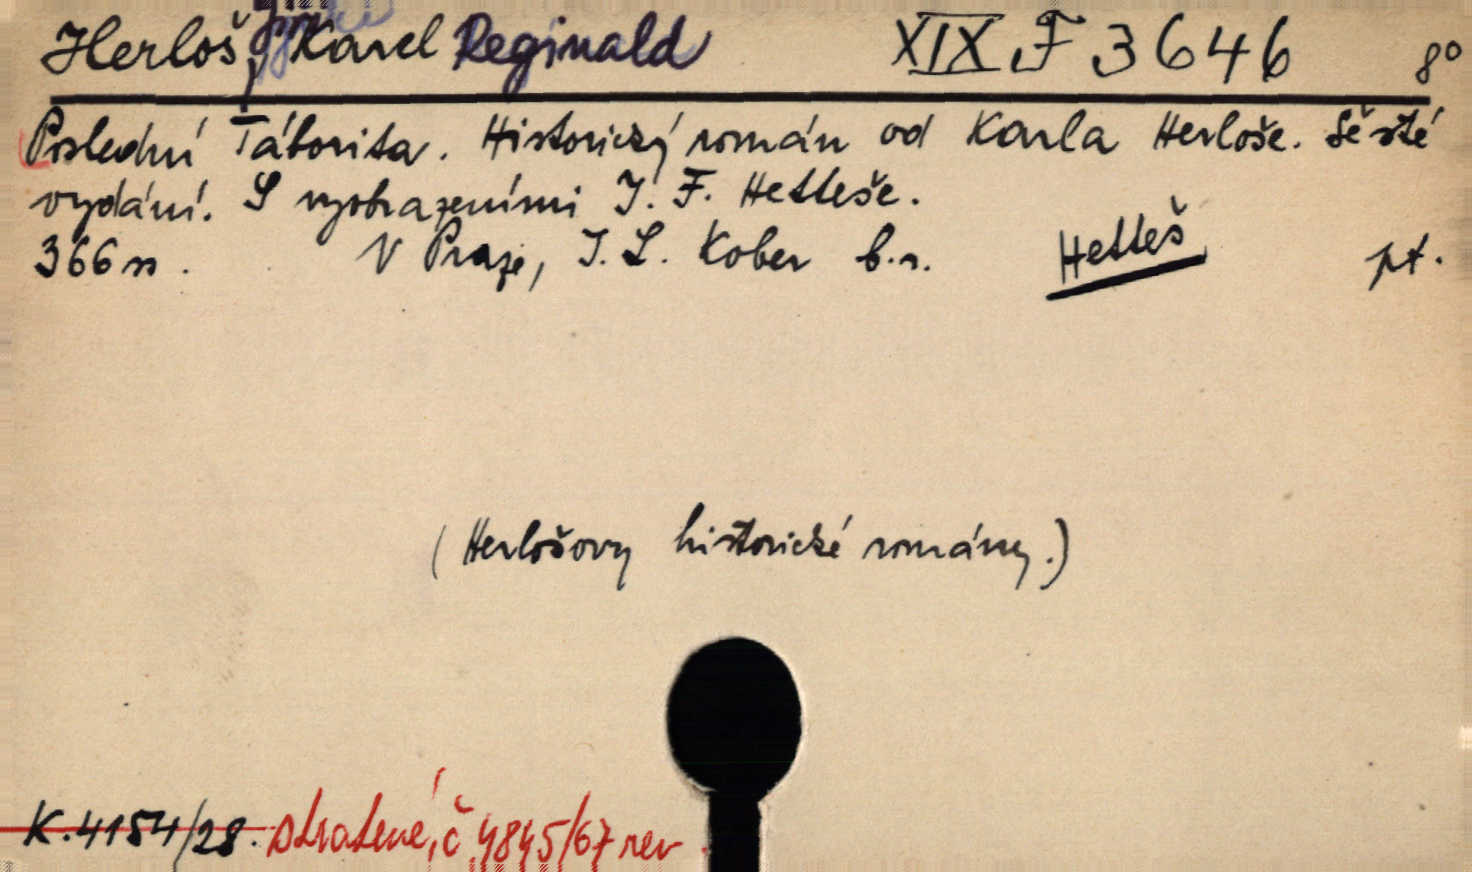 Herloš, Karel Reginald XIX F 3646 8°
Poslední Táborita. Historický román od Karla Herloše. Šesté
vydání. S vyobrazeními J. F. Hetteše.
366 s. V Praze, I. L. Kober b.r. Hetteš pt.
(Herlošovy historické romány.)
K. 4154/28. stratené, č. 4845/67 rev.